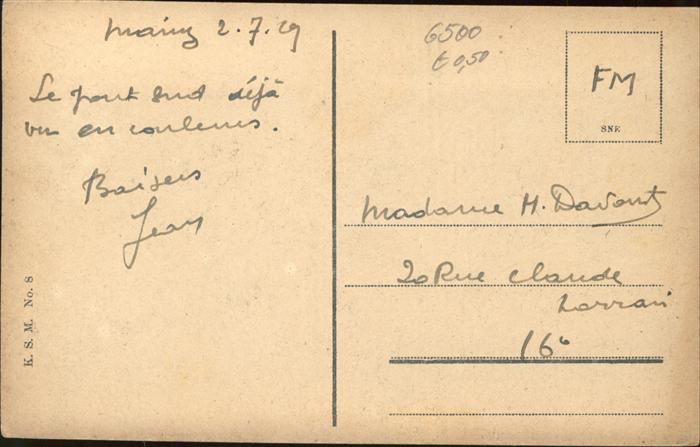 Mainz 2.7.29
Le pont sud déjà
vu en couleurs.
Baisers
Jean
K. S. M. No. 8
6500
€ 0,50
FM
SNE
Madame H. Davout
20 Rue Claude
Lorrain
16e